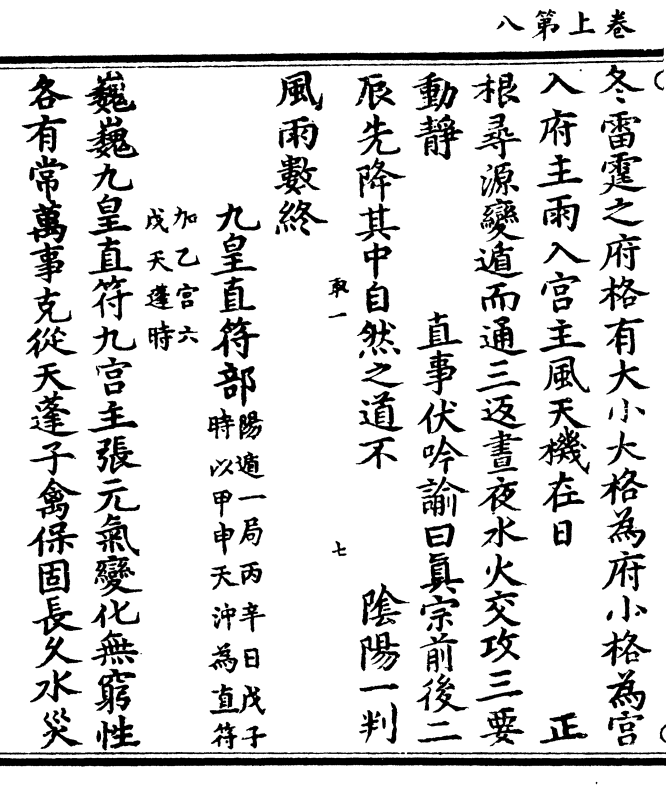 卷上第八
冬雷霆之府格有大小大格為府小格為宮
入府主雨入宮主風天機在日　正
根尋源變遁而通三返晝夜水火交攻三要
動靜　直事伏吟論曰真宗前後二
辰先降其中自然之道不　陰陽一判
取一　七
風雨數終
九皇直符部陽遁一局丙辛日戊子
時以甲申天沖為直符
加乙宮六
戊天蓬時
巍巍九皇直符九宮主張元氣變化無窮性
各有常萬事克從天蓬子禽保固長久水災